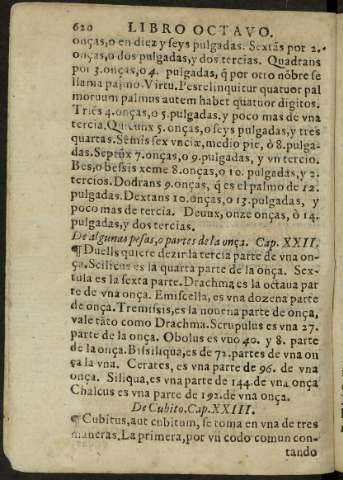 620 LIBRO OCTAVO.
onças, o en diez y seys pulgadas. Sextãs por 2.
onças, o dos pulgadas, y dos tercias. Quadrans
por 3. onças, o 4. pulgadas, q̃ por otro nõbre se
llama palmo. Virtu. Pes relinquitur quatuor pal
moruum palmus autem habet quatuor digitos.
Triẽs 4. onças, o 5. pulgadas, y poco mas de vna
tercia. Quicunx 5. onças, o seys pulgadas, y tres
quartas. Semis sex vncia, medio pie, ò 8. pulga-
das. Septũx 7. onças, o 9. pulgadas, y vn tercio.
Bes, o bessis xeme 8. onças, o 10. pulgadas, y 2.
tercios. Dodrans 9. onças, q̃ es el palmo de 12.
pulgadas. Dextans 10. onças, o 13. pulgadas, y
poco mas de tercia. Deunx, onze onças, ò 14.
pulgadas, y dos tercias.
De algunas pesas, o partes de la onça. Cap. XXII.
¶ Duells quiere dezir la tercia parte de vna on-
ça. Scilicus es la quarta parte de la onça. Sex-
tula es la sexta parte. Drachma es la octaua par
te de vna onça. Emiscella, es vna dozena parte
de onça. Tremissis, es la nouena parte de onça,
vale tãto como Drachma. Scrupulus es vna 27.
parte de la onça. Obolus es vno 40. y 8. parte
de la onça. Bissiliqua, es de 72. partes de vna on
ça la vna. Cerates, es vna parte de 96. de vna
onça. Siliqua, es vna parte de 144. de vna onça
Chalcus es vna parte de 192. de vna onça.
De Cubito. Cap. XXIII.
¶ Cubitus, aut cubitum, se toma en vna de tres
maneras. La primera, por vn codo comun con-
tando